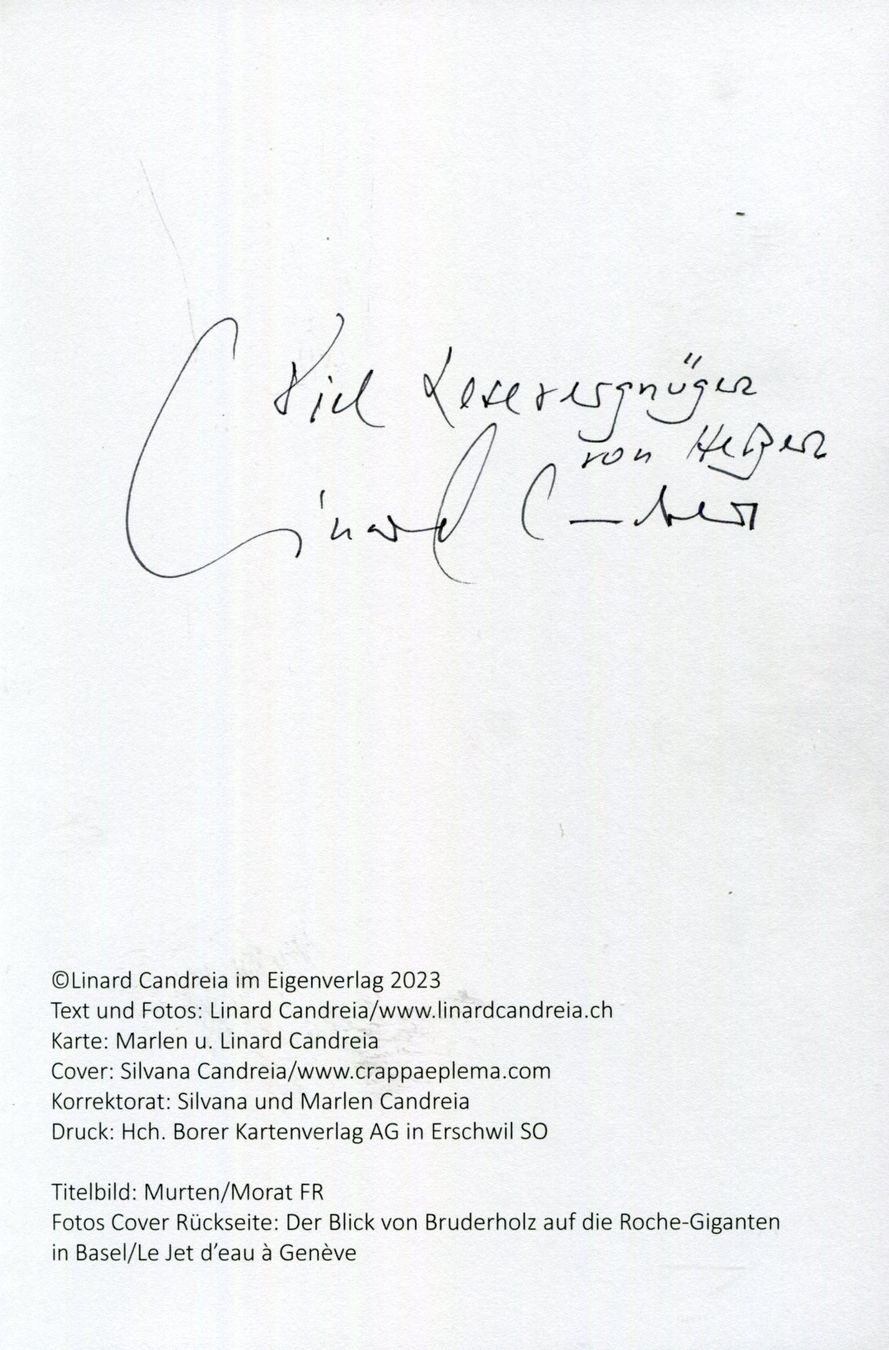 Viel Lesevergnügen
von Herzen
Linard Candreia
©Linard Candreia im Eigenverlag 2023
Text und Fotos: Linard Candreia/www.linardcandreia.ch
Karte: Marlen u. Linard Candreia
Cover: Silvana Candreia/www.crappaeplema.com
Korrektorat: Silvana und Marlen Candreia
Druck: Hch. Borer Kartenverlag AG in Erschwil SO
Titelbild: Murten/Morat FR
Fotos Cover Rückseite: Der Blick von Bruderholz auf die Roche-Giganten
in Basel/Le Jet d’eau à Genève